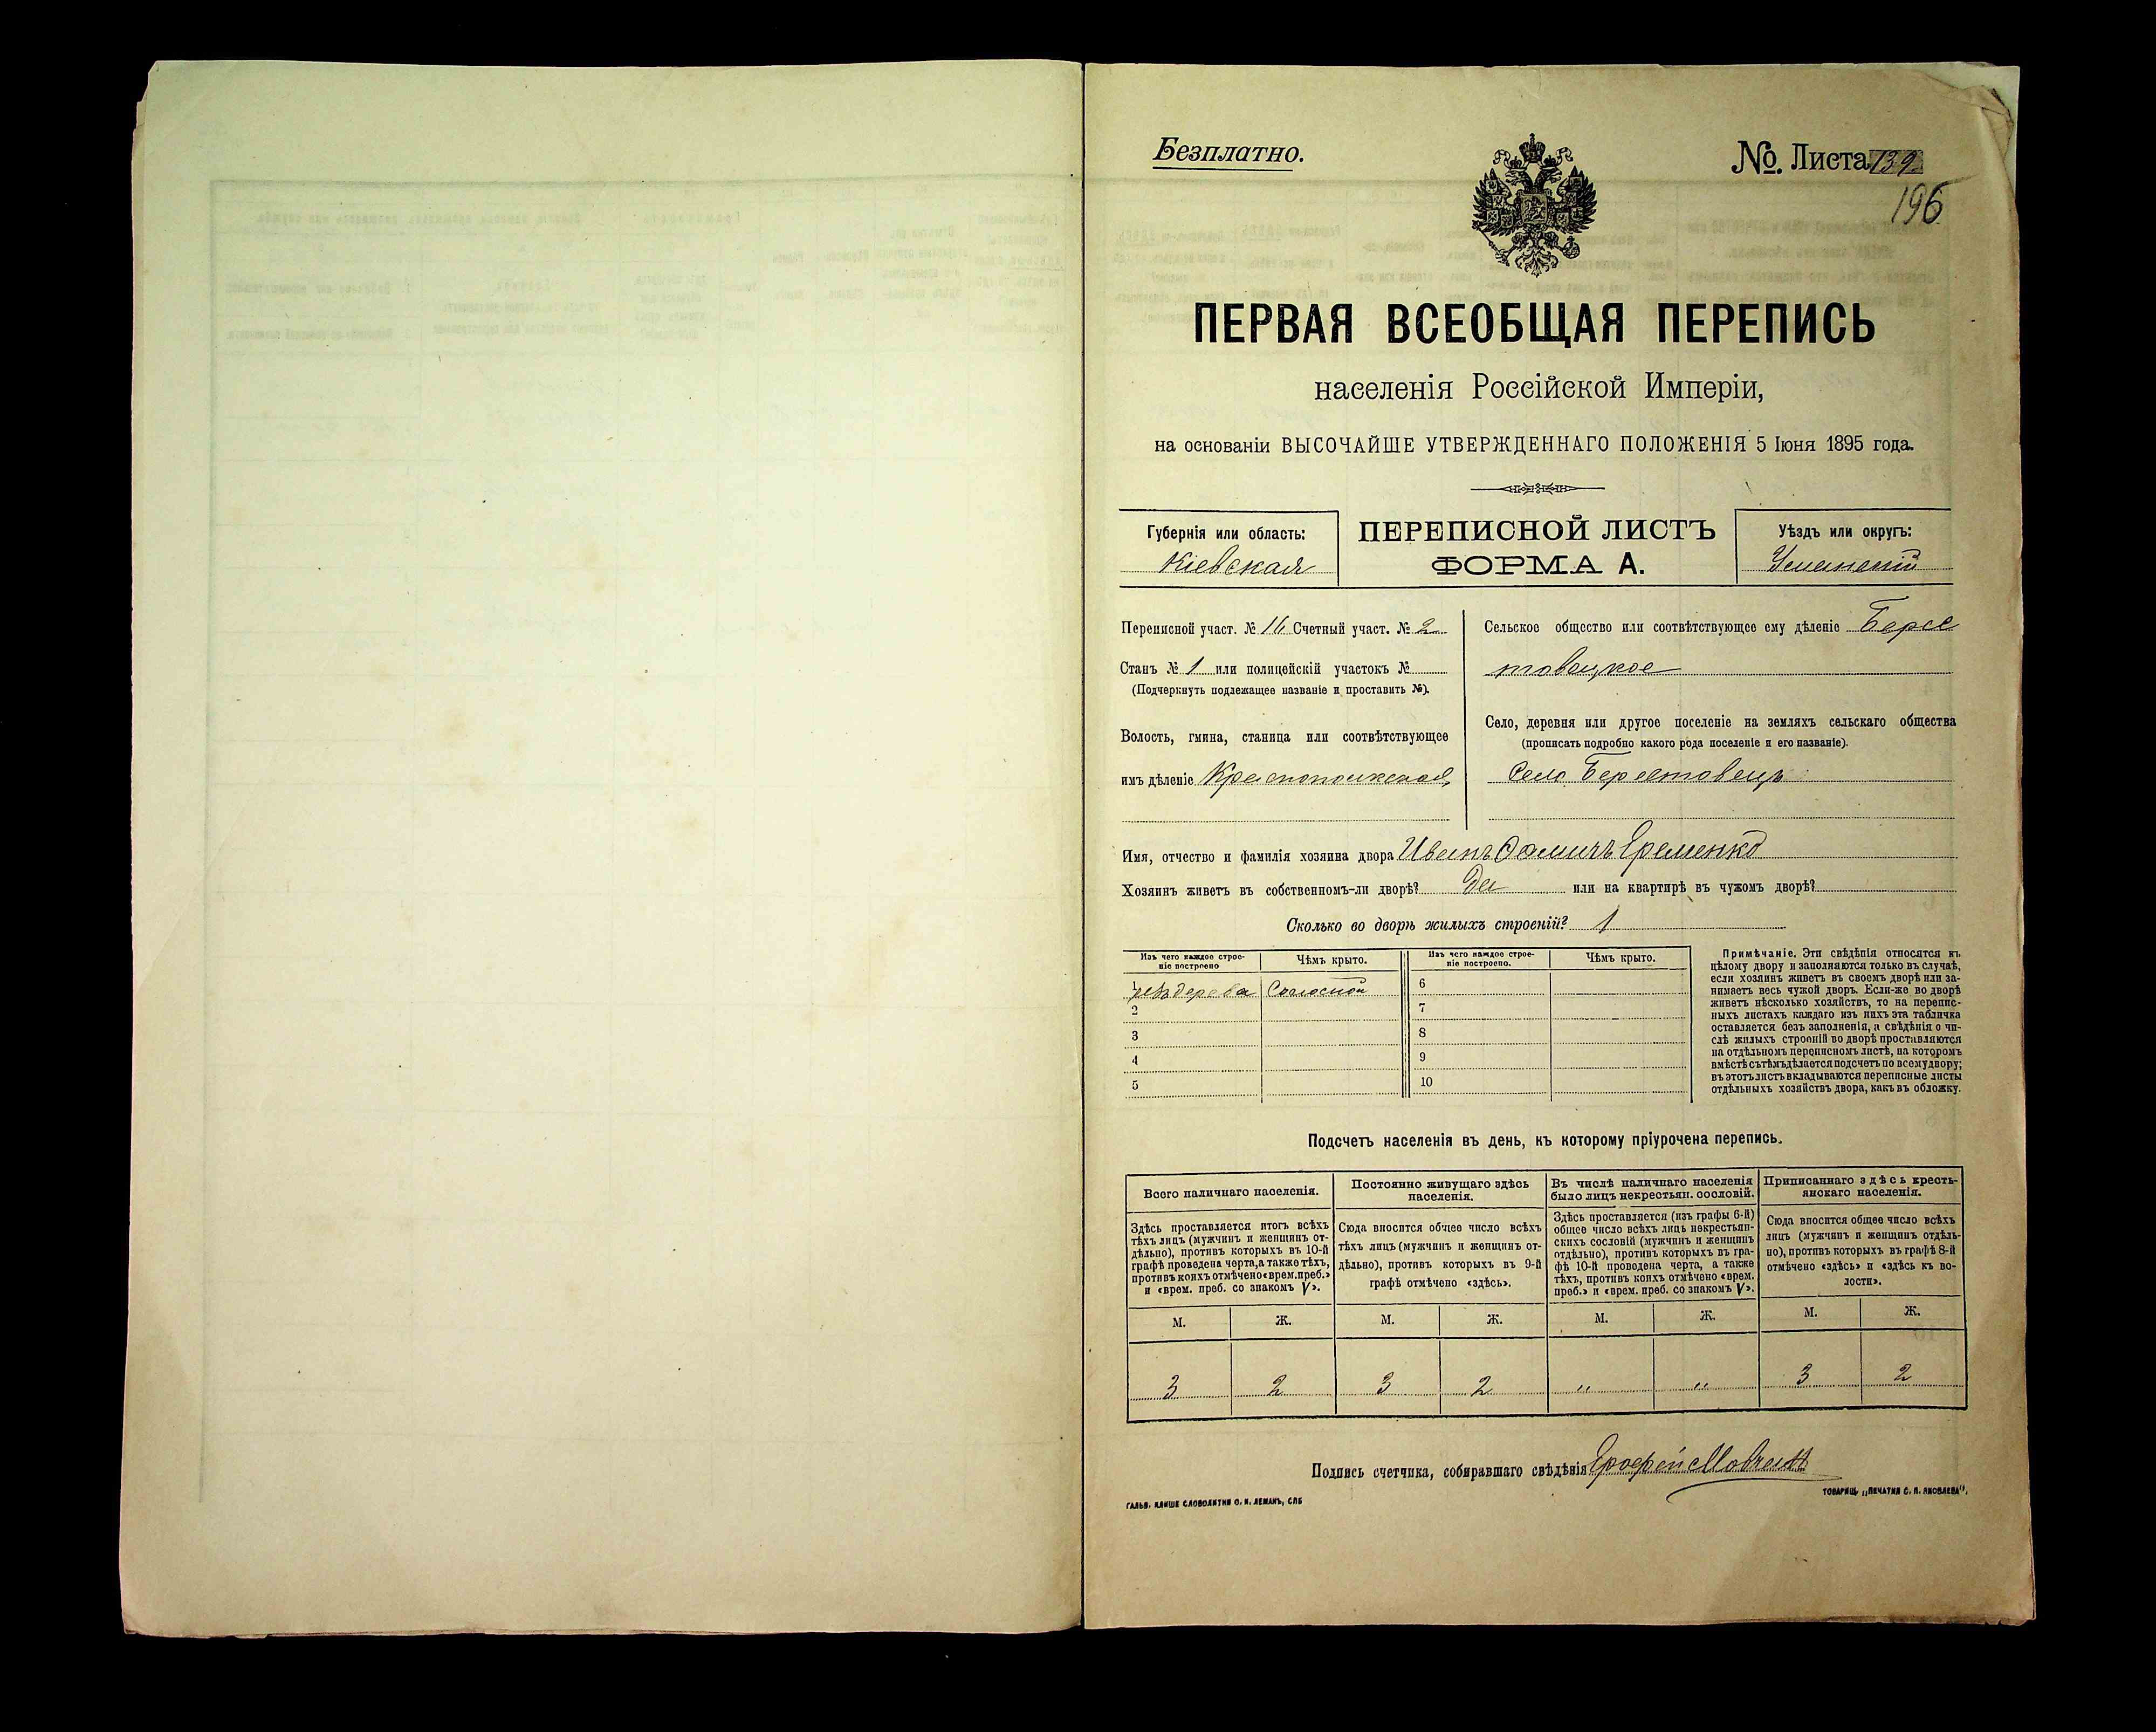 Безплатно.
№ Листа 139.
196
ПЕРВАЯ ВСЕОБЩАЯ ПЕРЕПИСЬ
населенія Россійской Имперіи,
на основаніи ВЫСОЧАЙШЕ УТВЕРЖДЕННАГО ПОЛОЖЕНІЯ 5 Іюня 1895 года.
Губернія или область:
Кіевская
ПЕРЕПИСНОЙ ЛИСТЪ
ФОРМА А.
Уѣздъ или округъ:
Уманскій
Переписной участ. № 14 Счетный участ. № 2
Станъ № 1 или полицейскій участокъ №
(Подчеркнуть подлежащее названіе и проставить №).
Волость, гмина, станица или соотвѣтствующее
имъ дѣленіе
Сельское общество или соотвѣтствующее ему дѣленіе Берес
товецкое
Село, деревня или другое поселеніе на земляхъ сельскаго общества
(прописать подробно какого рода поселеніе и его названіе).
Село Берестовецъ
Имя, отчество и фамилія хозяина двора Иванъ Фомичъ Еременко
Хозяинъ живетъ въ собственномъ-ли дворѣ? Да или на квартирѣ въ чужомъ дворѣ?
Сколько во дворѣ жилыхъ строеній? 1
Изъ чего каждое строе-
ніе построено
Чѣмъ крыто.
Изъ чего каждое строе-
ніе построено.
Чѣмъ крыто.
1 изъ дерева Соломой
2
3
4
5
6
7
8
9
10
Примѣчаніе. Эти свѣдѣнія относятся къ
цѣлому двору и заполняются только въ случаѣ,
если хозяинъ живетъ въ своемъ дворѣ или за-
нимаетъ весь чужой дворъ. Если-же во дворѣ
живетъ нѣсколько хозяйствъ, то на перепис-
ныхъ листахъ каждаго изъ нихъ эта табличка
оставляется безъ заполненія, а свѣдѣнія о чи-
слѣ жилыхъ строеній во дворѣ проставляются
на отдѣльномъ переписномъ листѣ, на которомъ
вмѣстѣ съ тѣмъ дѣлается подсчетъ по всему двору;
въ этотъ листъ вкладываются переписные листы
отдѣльныхъ хозяйствъ двора, какъ въ обложку.
Подсчетъ населенія въ день, къ которому пріурочена перепись.
Всего наличнаго населенія.
Здѣсь проставляется итогъ всѣхъ
тѣхъ лицъ (мужчинъ и женщинъ от-
дѣльно), противъ которыхъ въ 10-й
графѣ проведена черта, а также тѣхъ,
противъ коихъ отмѣчено «врем. преб.»
и «врем. преб. со знакомъ V».
Постоянно живущаго здѣсь
населенія.
Сюда вносится общее число всѣхъ
тѣхъ лицъ (мужчинъ и женщинъ от-
дѣльно), противъ которыхъ въ 9-й
графѣ отмѣчено «здѣсь».
Въ числѣ наличнаго населенія
было лицъ некрестьян. сословій.
Здѣсь проставляется (изъ графы 6-й)
общее число всѣхъ лицъ некрестьян-
скихъ сословій (мужчинъ и женщинъ
отдѣльно), противъ которыхъ въ гра-
фѣ 10-й проведена черта, а также
тѣхъ, противъ коихъ отмѣчено «врем.
преб.» и «врем. преб. со знакомъ V».
Приписаннаго здѣсь кресть-
янскаго населенія.
Сюда вносится общее число всѣхъ
лицъ (мужчинъ и женщинъ отдѣль-
но), противъ которыхъ въ графѣ 8-й
отмѣчено «здѣсь» и «здѣсь къ во-
лости».
М. Ж. М. Ж. М. Ж. М. Ж.
3 2 3 2 " " 3 2
Подпись счетчика, собиравшаго свѣдѣнія Ерофей
ГАЛЬВ. КЛИШЕ СЛОВОЛИТНИ О. И. ЛЕМАНЪ, СПБ
ТОВАРИЩ. „ПЕЧАТНЯ С. П. ЯКОВЛЕВА".